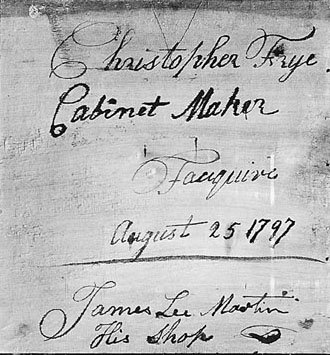 Christopher Frye
Cabinet Maker
Fauquire
August 25 1797
James Lee Martin
His Shop